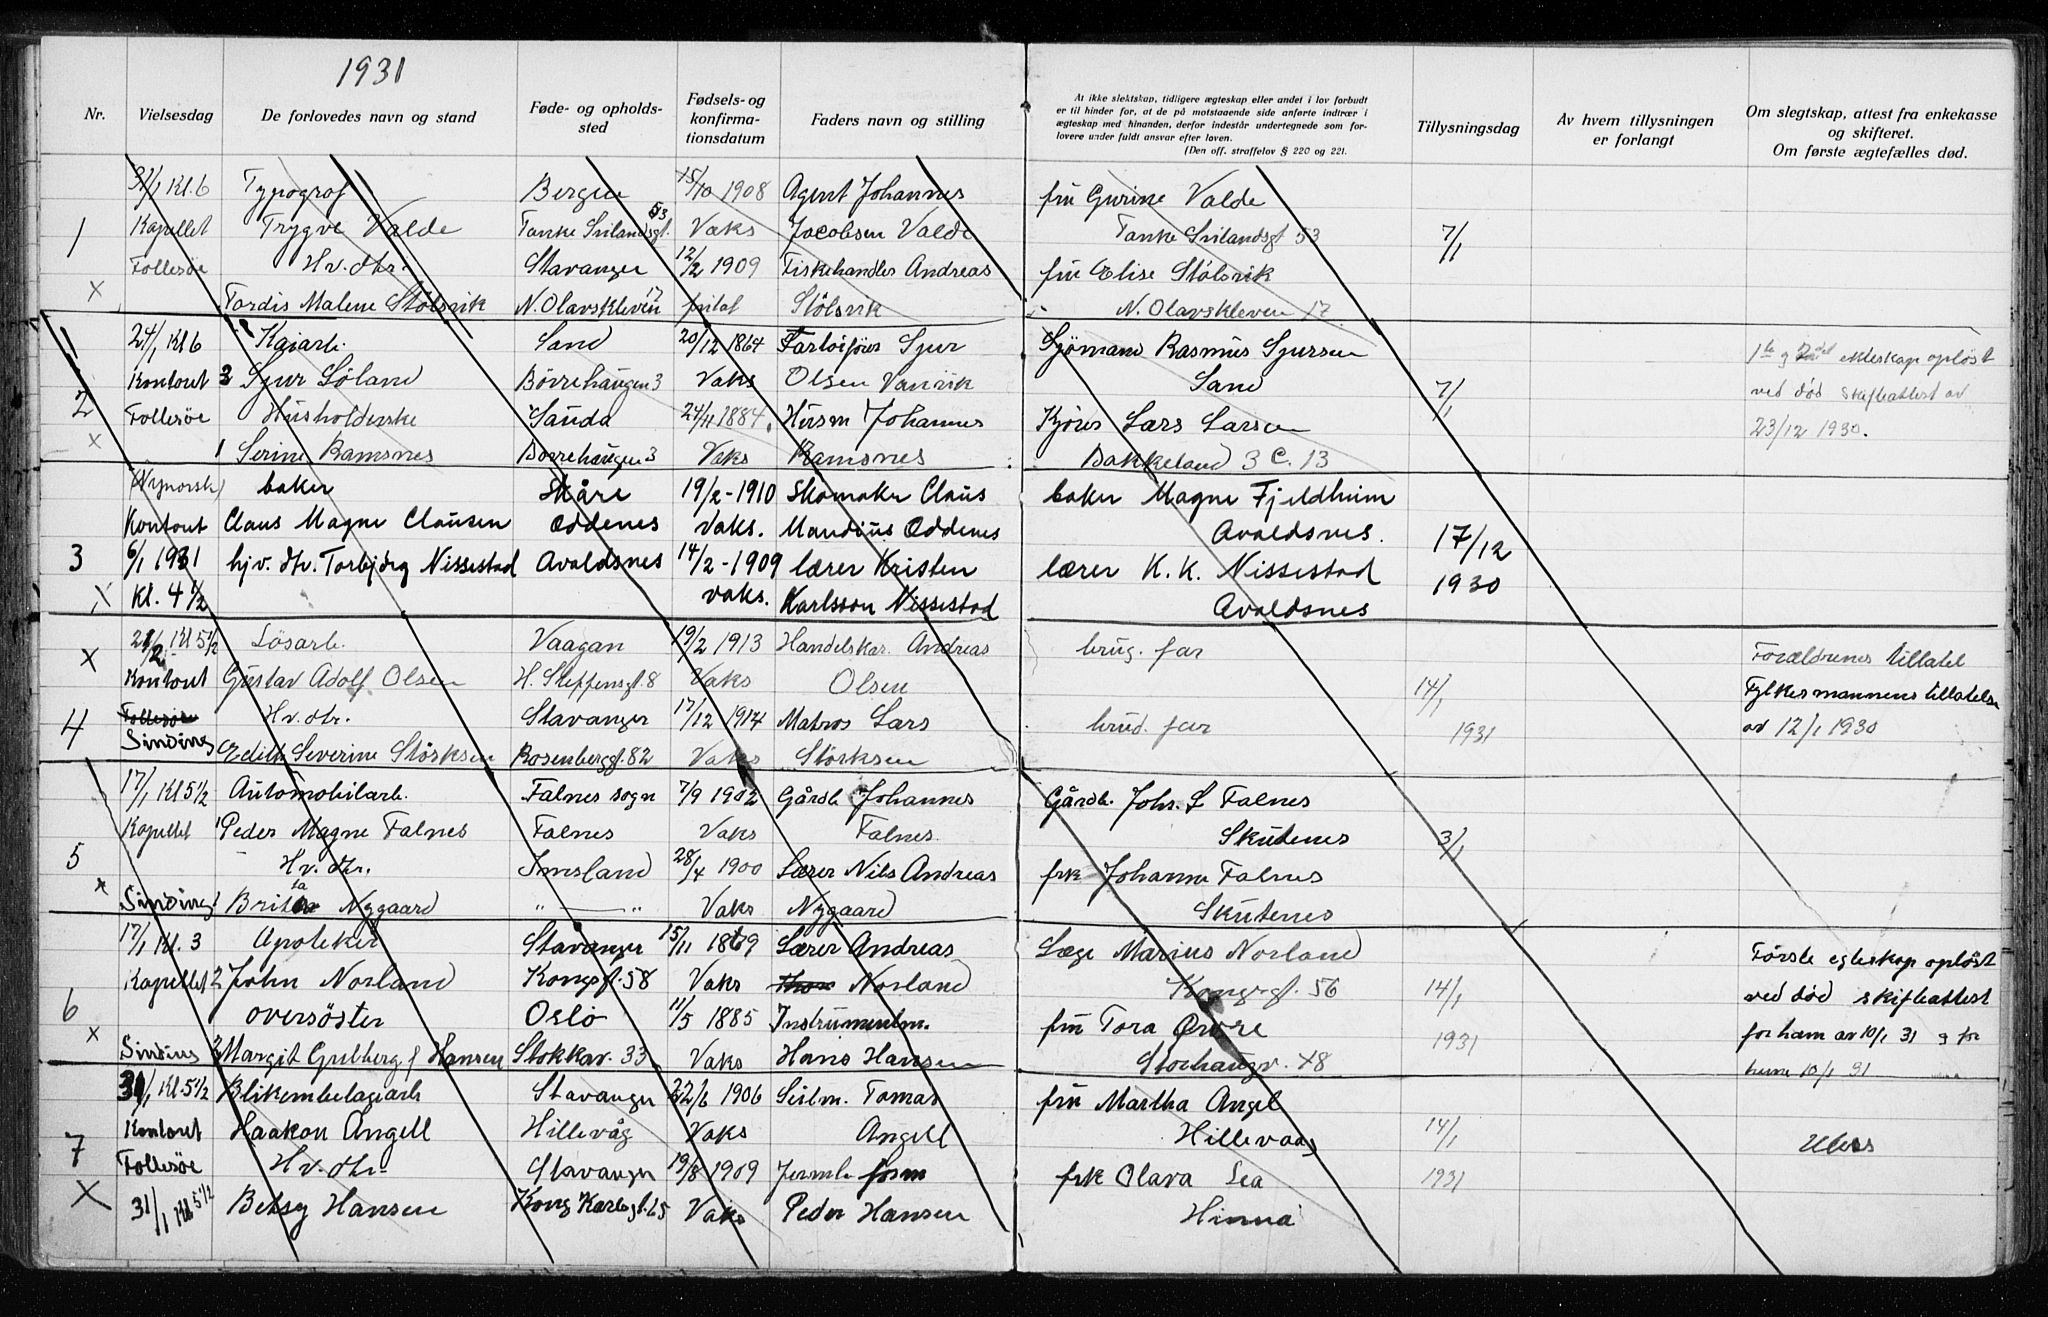 1931
Nr.
Vielsesdag
De forlovedes navn og stand
Føde- og opholds-
sted
Fødsels- og
konfirma-
tionsdatum
Faders navn og stilling
At ikke slektskap, tidligere ægteskap eller andet i lov forbudt
er til hinder for, at de på motstaaende side anførte indtrær i
ægteskap med hinanden, derfor indestår undertegnede som for-
lovere under fuldt ansvar efter loven.
(Den off. straffelov § 220 og 221.
Tillysningsdag
Av hvem tillysningen
er forlangt
Om slegtskap, attest fra enkekasse
og skifteret.
Om første ægtefælles død.
31/1 Kl. 6 Typograf Bergen 15/10 1908 Agent Johannes fru Gurine Valde
1 Kapellet Trygve Valde Tanke Svilandsgt. 53 Vaks Jacobsen Valde Tanke Svilandsgt 53 7/1
Follesøe Hv. dtr. Stavanger 12/2 1909 Fiskehandler Andreas fru Elise Stölsvik
x Tordis Malene Stölsvik N. Olavskleven 17 privat Stölsvik N. Olavskleven 17
24/1 Kl 6 Kaiarb. Sand 20/12 1864 Sjur Sjömand Rasmus Sjursen 1ste og 2det ekteskap oplöst
Kontoret 3 Sjur Löland Börrehaugen 3 Vaks Olsen Vanvik Sand 7/1 ved död skifteattest av
2 Follesøe Husholderske Sauda 24/11 1884. Husm Johannes Lars Larsen 23/12 1930.
x 1 Serine Ramsnes Börrehaugen 3 Vaks Ramsnes Bakkeland 3 C. 13
(Nynorsk) baker Skåre 19/2-1910 Skomaker Claus baker Magne Fjeldheim
Kontoret Claus Magne Clausen Oddenes Vaks. Mandius Oddenes Avaldsnes. 17/12
3 6/1 1931 hjv. dtr. Torbjörg Nissestad Avaldsnes 14/2-1909 lærer Kristen lærer K. K. Nissestad 1930
x Kl. 4 1/2 vaks. Karlsson Nissestad Avaldsnes
x 21/2 Kl 5 1/2 Lösarb. Vaagan 19/2 1913 Handelskar. Andreas brug. far Forældrenes tillatel
Kontoret Gustav Adolf Olsen H. Steffensgt. 8 Vaks Olsen 14/1 Fylkesmannens tillatelse
4 Follesøe Hv. dtr. Stavanger 17/12 1914 Matros Lars brud. far 1931 av 12/1 1930
Sinding Edith Severine Störksen Rosenberggt. 82 Vaks Störksen
17/1 Kl 5 1/2 Automobilarb. Falnes sogn 7/9 1902 Gårdb. Johannes Gårdb. Johs. S Falnes
Kapellet 1 Peder Magne Falnes Falnes Vaks Falnes. Skutenes 3/1
5 Hv. dtr. Imsland 28/4 1900 Lærer Nils Andreas frk Johanne Falnes
x Sinding 1 Brita Nygaard " — " Vaks Nygaard Skutenes
17/1 Kl. 3 Apoteker Stavanger 15/11 1869 Lærer Andreas Læge Marius Norland Förste egteskap oplöst
Kapellet 2 John Norland Kongsgt. 58 Vaks Norland Kongsgt. 56 14/1 ved död skifteattest
6 oversöster Oslo 11/5 1885 Instrumentm. fru Tora Qvore for ham av 10/1 31 og for
x Sinding 2 Margit Gulberg f Hansen Stokkav. 33 Vaks Hans Hansen Storhaugv. 48 1931 henne 10/1 31
31/1 Kl 5 1/2 Blikemballagearb Stavanger 22/6 1906 Seilm. Tomas fru Martha Angel
7 Kontoret Haakon Angell Hillevåg Vaks Angell Hillevaag 14/1
Follesøe Hv. dtr. Stavanger 19/8 1909 Jernb. form frk Olava Lea 1931
x 31/1 Kl 5 1/2 Betsy Hansen Kong Karlsgt. 65 Vaks Peder Hansen Hinna